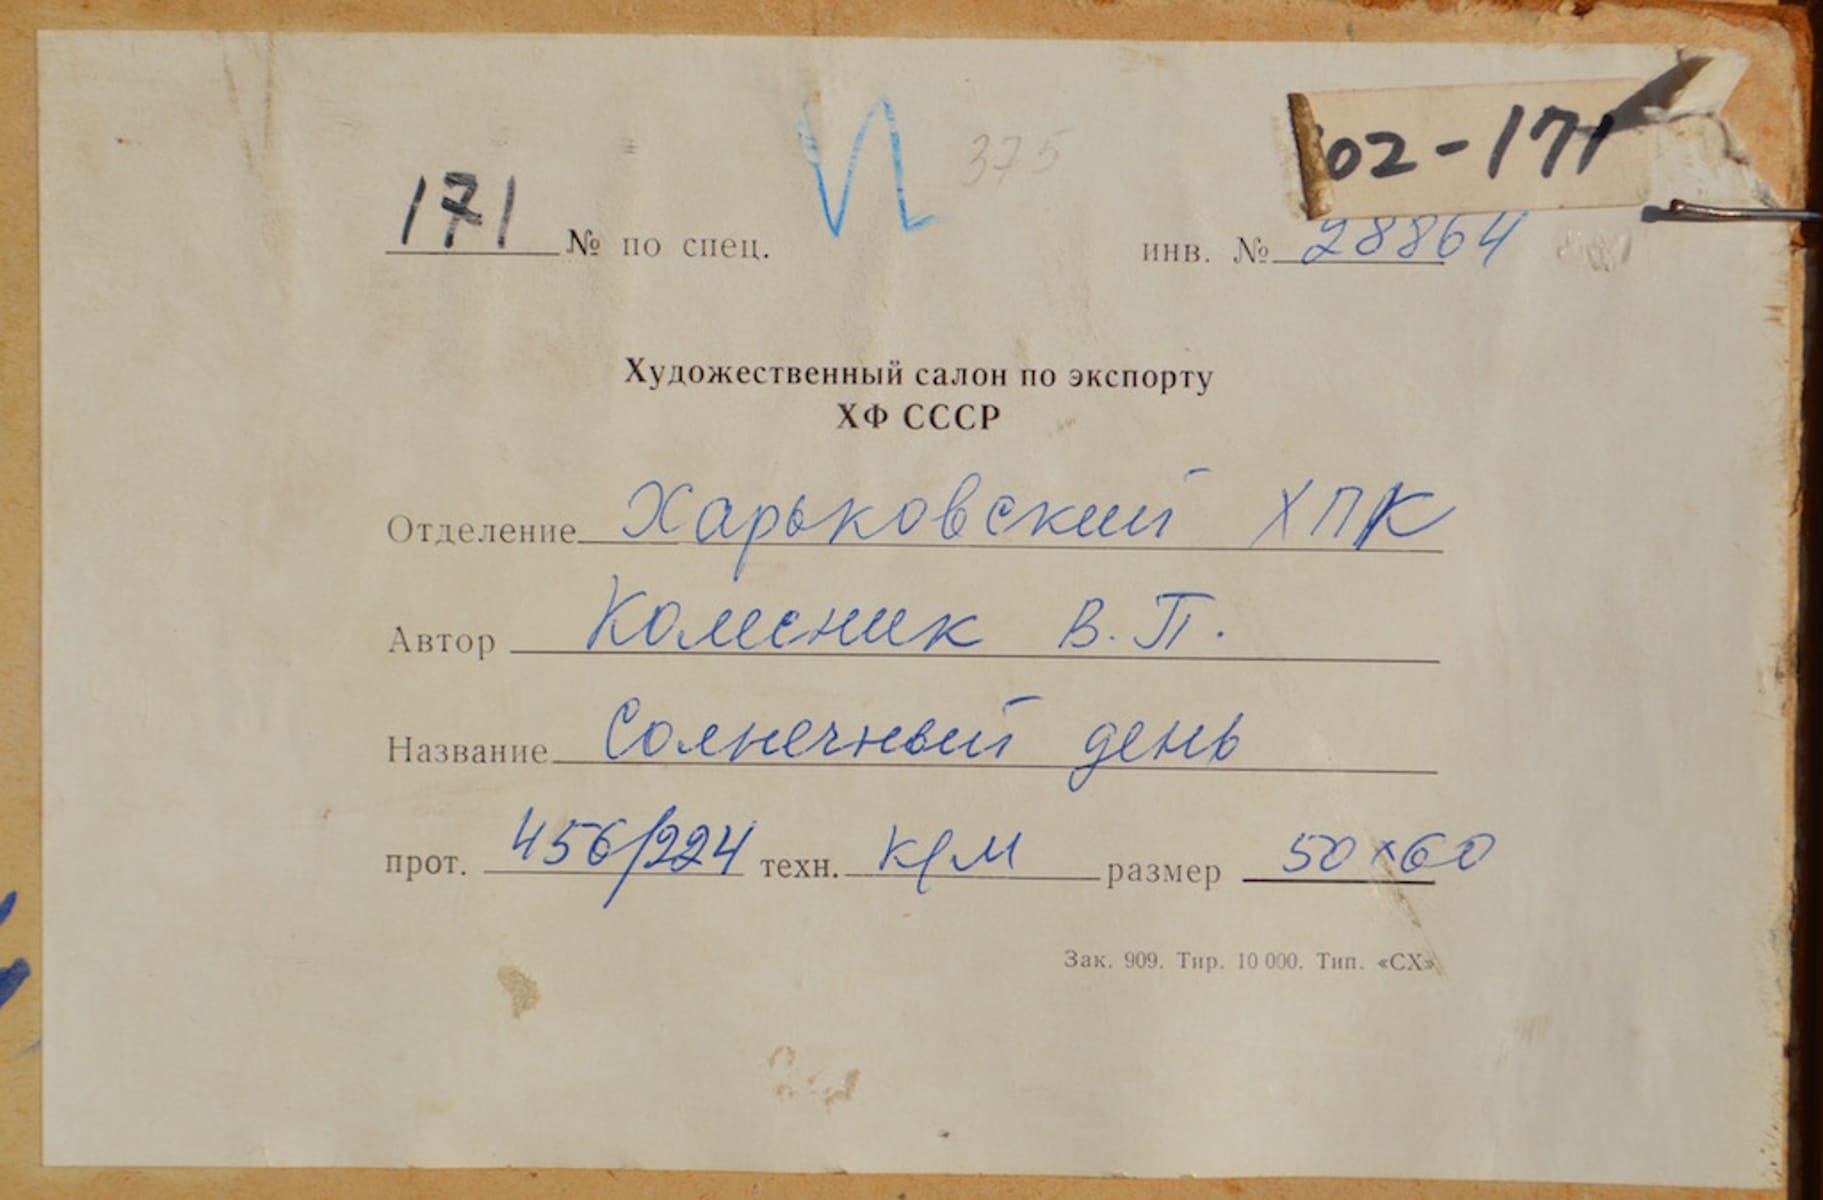 375
02-171
171 № по спец. инв. № 28864
Художественный салон по экспорту
ХФ СССР
Отделение Харьковский ХПК
Автор Колесник В.П.
Название Солнечный день
прот. 456/224 техн. к/м размер 50×60
Зак. 909. Тир. 10 000. Тип. «СХ»